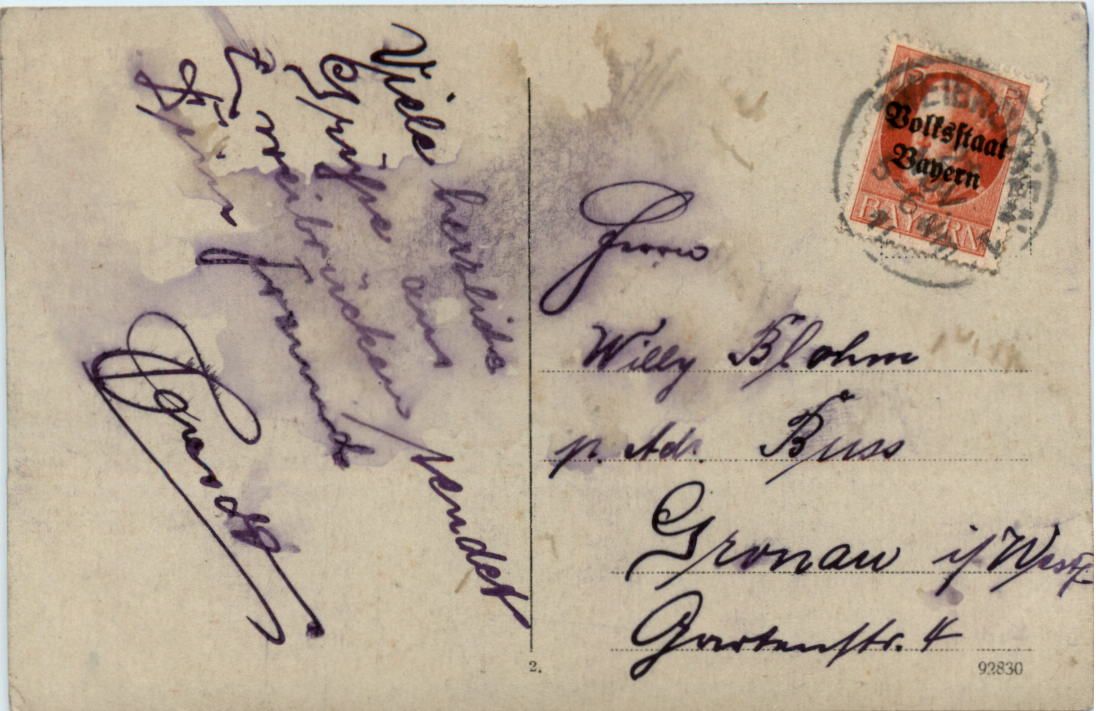 Viele herzliche
Grüße aus
Zweibrücken sendet
Dein Freund
Herrn
Willy Blohm
p. Adr. Buss
Gronau i/Westf.
Gartenstr. 4
Volksstaat
Bayern
BAYERN
ZWEIBRÜCKEN
2.
92830